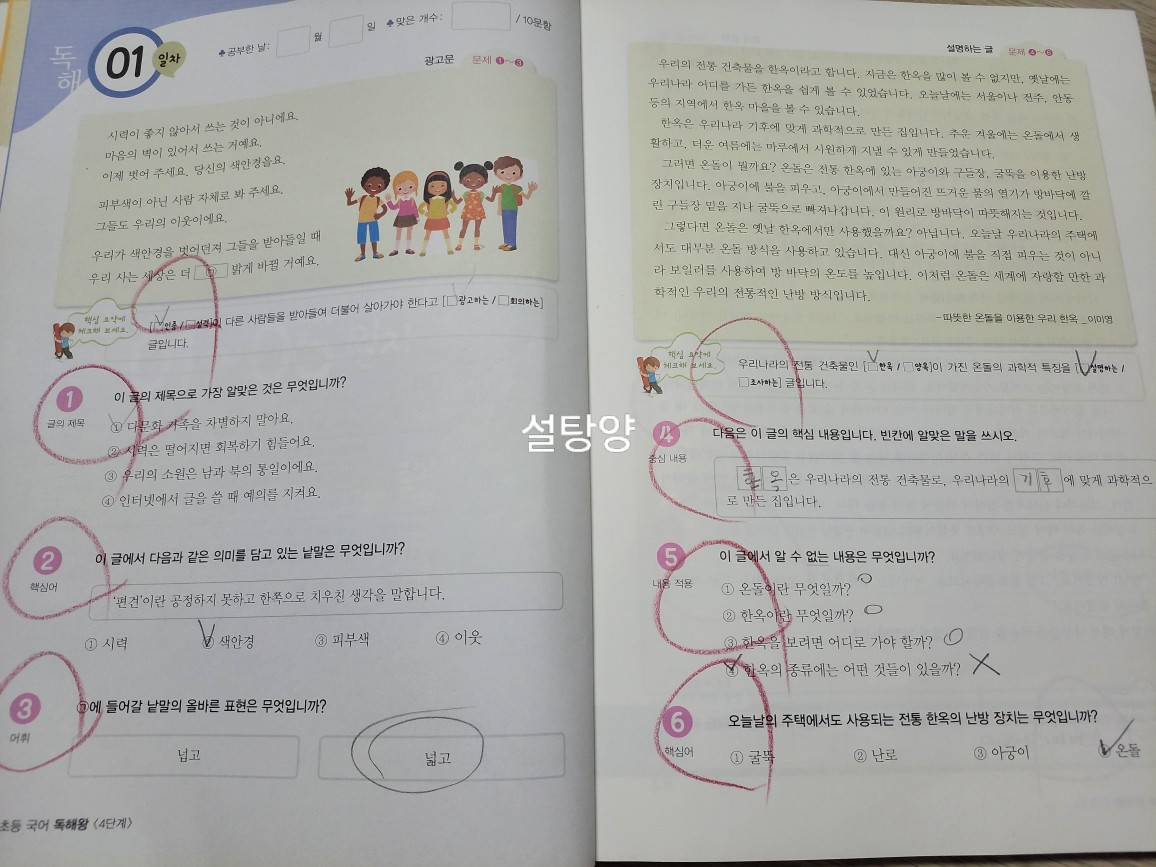 독해
01 일차
♣공부한 날: 월 일 ♣맞은 개수: / 10문항
광고문 문제 ❶~❸
시력이 좋지 않아서 쓰는 것이 아니에요.
마음의 벽이 있어서 쓰는 거예요.
이제 벗어 주세요. 당신의 색안경을요.
피부색이 아닌 사람 자체로 봐 주세요.
그들도 우리의 이웃이에요.
우리가 색안경을 벗어던져 그들을 받아들일 때
우리 사는 세상은 더 ㉠ 밝게 바뀔 거예요.
핵심 요약에
체크해 보세요.
[□인종 / □성격]이 다른 사람들을 받아들여 더불어 살아가야 한다고 [□광고하는 / □회의하는]
글입니다.
1 이 글의 제목으로 가장 알맞은 것은 무엇입니까?
글의 제목
① 다문화 가족을 차별하지 말아요.
② 시력은 떨어지면 회복하기 힘들어요.
③ 우리의 소원은 남과 북의 통일이에요.
④ 인터넷에서 글을 쓸 때 예의를 지켜요.
2 이 글에서 다음과 같은 의미를 담고 있는 낱말은 무엇입니까?
핵심어
'편견'이란 공정하지 못하고 한쪽으로 치우친 생각을 말합니다.
① 시력 ② 색안경 ③ 피부색 ④ 이웃
3 ㉠에 들어갈 낱말의 올바른 표현은 무엇입니까?
어휘
넙고 넓고
초등 국어 독해왕 <4단계>
설명하는 글 문제 ❹~❻
우리의 전통 건축물을 한옥이라고 합니다. 지금은 한옥을 많이 볼 수 없지만, 옛날에는
우리나라 어디를 가든 한옥을 쉽게 볼 수 있었습니다. 오늘날에는 서울이나 전주, 안동
등의 지역에서 한옥 마을을 볼 수 있습니다.
한옥은 우리나라 기후에 맞게 과학적으로 만든 집입니다. 추운 겨울에는 온돌에서 생
활하고, 더운 여름에는 마루에서 시원하게 지낼 수 있게 만들었습니다.
그러면 온돌이 뭘까요? 온돌은 전통 한옥에 있는 아궁이와 구들장, 굴뚝을 이용한 난방
장치입니다. 아궁이에 불을 피우고, 아궁이에서 만들어진 뜨거운 불의 열기가 방바닥에 깔
린 구들장 밑을 지나 굴뚝으로 빠져나갑니다. 이 원리로 방바닥이 따뜻해지는 것입니다.
그렇다면 온돌은 옛날 한옥에서만 사용했을까요? 아닙니다. 오늘날 우리나라의 주택에
서도 대부분 온돌 방식을 사용하고 있습니다. 대신 아궁이에 불을 직접 피우는 것이 아니
라 보일러를 사용하여 방 바닥의 온도를 높입니다. 이처럼 온돌은 세계에 자랑할 만한 과
학적인 우리의 전통적인 난방 방식입니다.
- 따뜻한 온돌을 이용한 우리 한옥 _이미영
핵심 요약에
체크해 보세요.
우리나라의 전통 건축물인 [□한옥 / □양옥]이 가진 온돌의 과학적 특징을 [□설명하는 /
□조사하는] 글입니다.
설탕양
4 다음은 이 글의 핵심 내용입니다. 빈칸에 알맞은 말을 쓰시오.
중심 내용
한옥은 우리나라의 전통 건축물로, 우리나라의 기후에 맞게 과학적으
로 만든 집입니다.
5 이 글에서 알 수 없는 내용은 무엇입니까?
내용 적용
① 온돌이란 무엇일까? O
② 한옥이란 무엇일까? O
③ 한옥을 보려면 어디로 가야 할까? O
④ 한옥의 종류에는 어떤 것들이 있을까? X
6 오늘날의 주택에서도 사용되는 전통 한옥의 난방 장치는 무엇입니까?
핵심어
① 굴뚝 ② 난로 ③ 아궁이 ④ 온돌